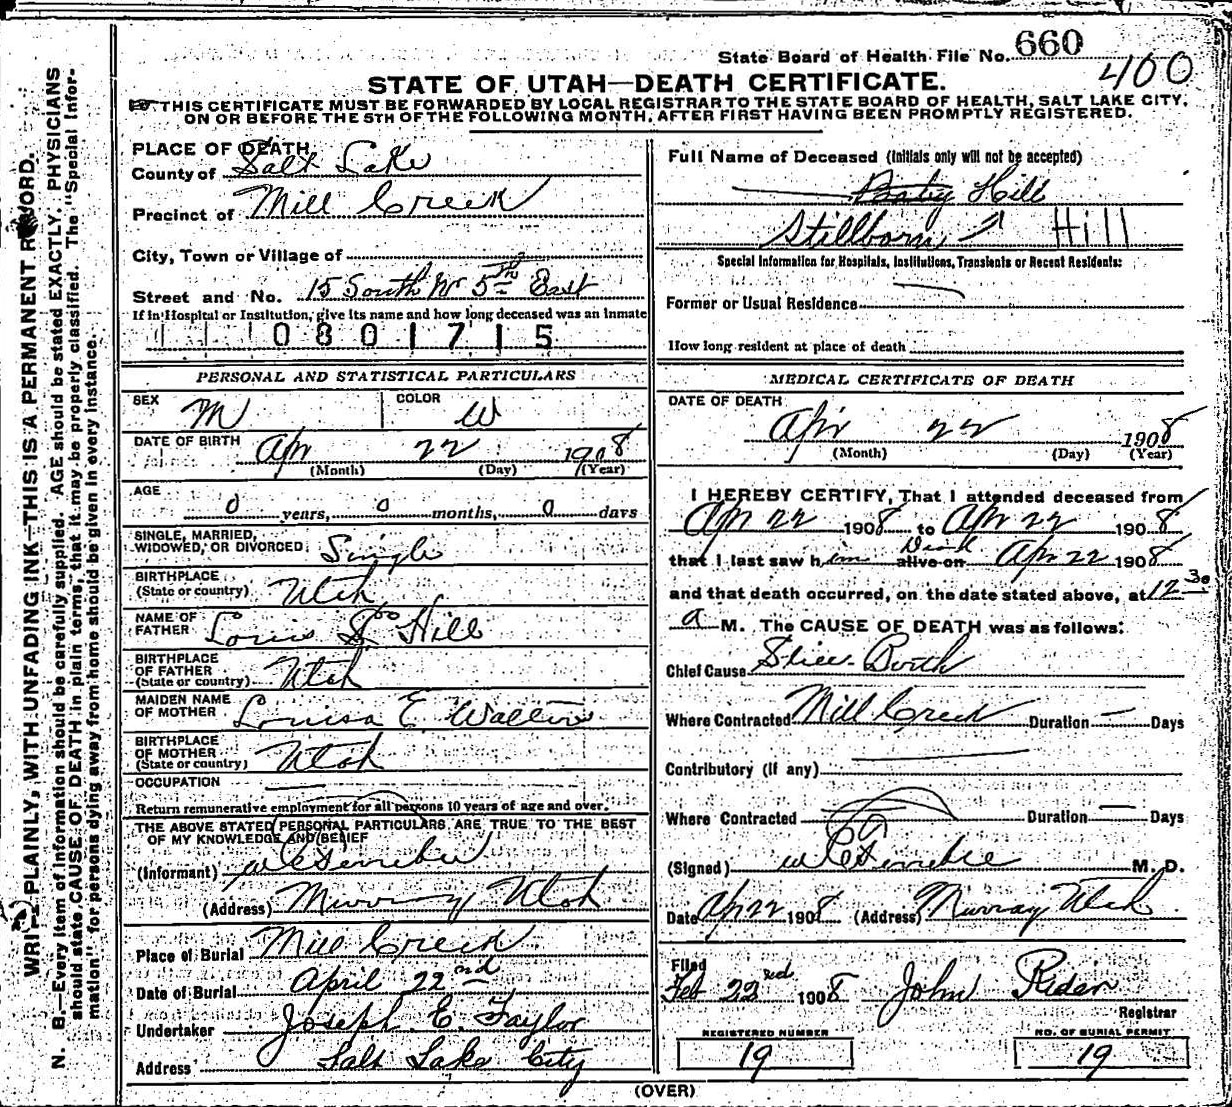 State Board of Health File No. 660
400
STATE OF UTAH—DEATH CERTIFICATE.
THIS CERTIFICATE MUST BE FORWARDED BY LOCAL REGISTRAR TO THE STATE BOARD OF HEALTH, SALT LAKE CITY,
ON OR BEFORE THE 5TH OF THE FOLLOWING MONTH, AFTER FIRST HAVING BEEN PROMPTLY REGISTERED.
WRITE PLAINLY, WITH UNFADING INK—THIS IS A PERMANENT RECORD.
N. B.—Every item of information should be carefully supplied. AGE should be stated EXACTLY. PHYSICIANS
should state CAUSE OF DEATH in plain terms, that it may be properly classified. The "Special Infor-
mation" for persons dying away from home should be given in every instance.
PLACE OF DEATH,
County of Salt Lake
Precinct of Mill Creek
City, Town or Village of
Street and No. 15 South Nr 5th East
If in Hospital or Institution, give its name and how long deceased was an inmate
0801715
PERSONAL AND STATISTICAL PARTICULARS
SEX M COLOR W
DATE OF BIRTH Apr 22 1908
(Month) (Day) (Year)
AGE
0 years, 0 months, 0 days
SINGLE, MARRIED,
WIDOWED, OR DIVORCED Single
BIRTHPLACE
(State or country) Utah
NAME OF
FATHER Louis Hill
BIRTHPLACE
OF FATHER
(State or country) Utah
MAIDEN NAME
OF MOTHER Louisa E Wallin
BIRTHPLACE
OF MOTHER
(State or country) Utah
OCCUPATION
Return remunerative employment for all persons 10 years of age and over.
THE ABOVE STATED PERSONAL PARTICULARS ARE TRUE TO THE BEST
OF MY KNOWLEDGE AND BELIEF
(Informant)
(Address) Murray Utah
Place of Burial Mill Creek
Date of Burial April 22nd
Undertaker Joseph E. Taylor
Address Salt Lake City
Full Name of Deceased (Initials only will not be accepted)
Baby Hill
Stillborn Hill
Special Information for Hospitals, Institutions, Transients or Recent Residents:
Former or Usual Residence
How long resident at place of death
MEDICAL CERTIFICATE OF DEATH
DATE OF DEATH
Apr 22 1908
(Month) (Day) (Year)
I HEREBY CERTIFY, That I attended deceased from
Apr 22 1908 to Apr 22 1908
that I last saw him alive on Dead Apr 22 1908
and that death occurred, on the date stated above, at 12 30
a M. The CAUSE OF DEATH was as follows:
Chief Cause Still Birth
Where Contracted Mill Creek Duration — Days
Contributory (if any)
Where Contracted Duration — Days
(Signed) M. D.
Date Apr 22 1908 (Address) Murray Utah
Filed
Feb 23rd 1908 John
Registrar
REGISTERED NUMBER
19
NO. OF BURIAL PERMIT
19
(OVER)